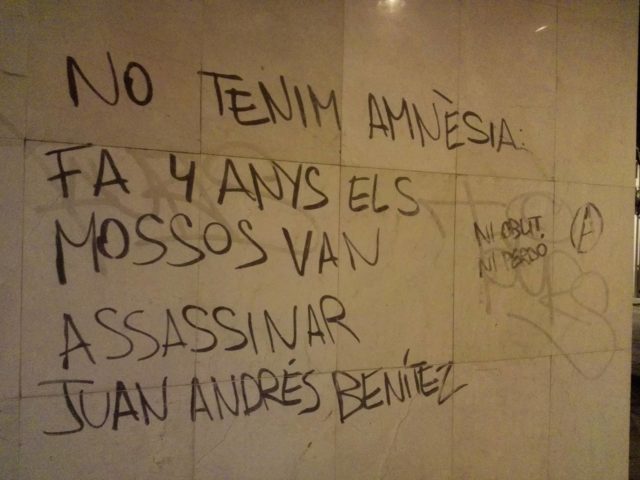 NO TENIM AMNÈSIA:
FA 4 ANYS ELS
MOSSOS VAN
ASSASSINAR
JUAN ANDRÉS BENÍTEZ
NI OBLIT.
NI PERDÓ
A